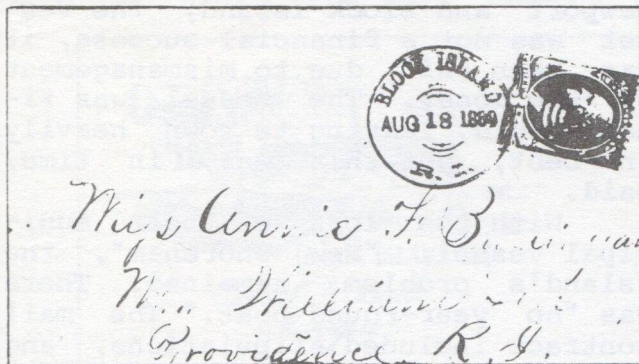 BLOCK ISLAND
AUG 18 1880
R. I.
Miss Annie F.
William St.
Providence R. I.